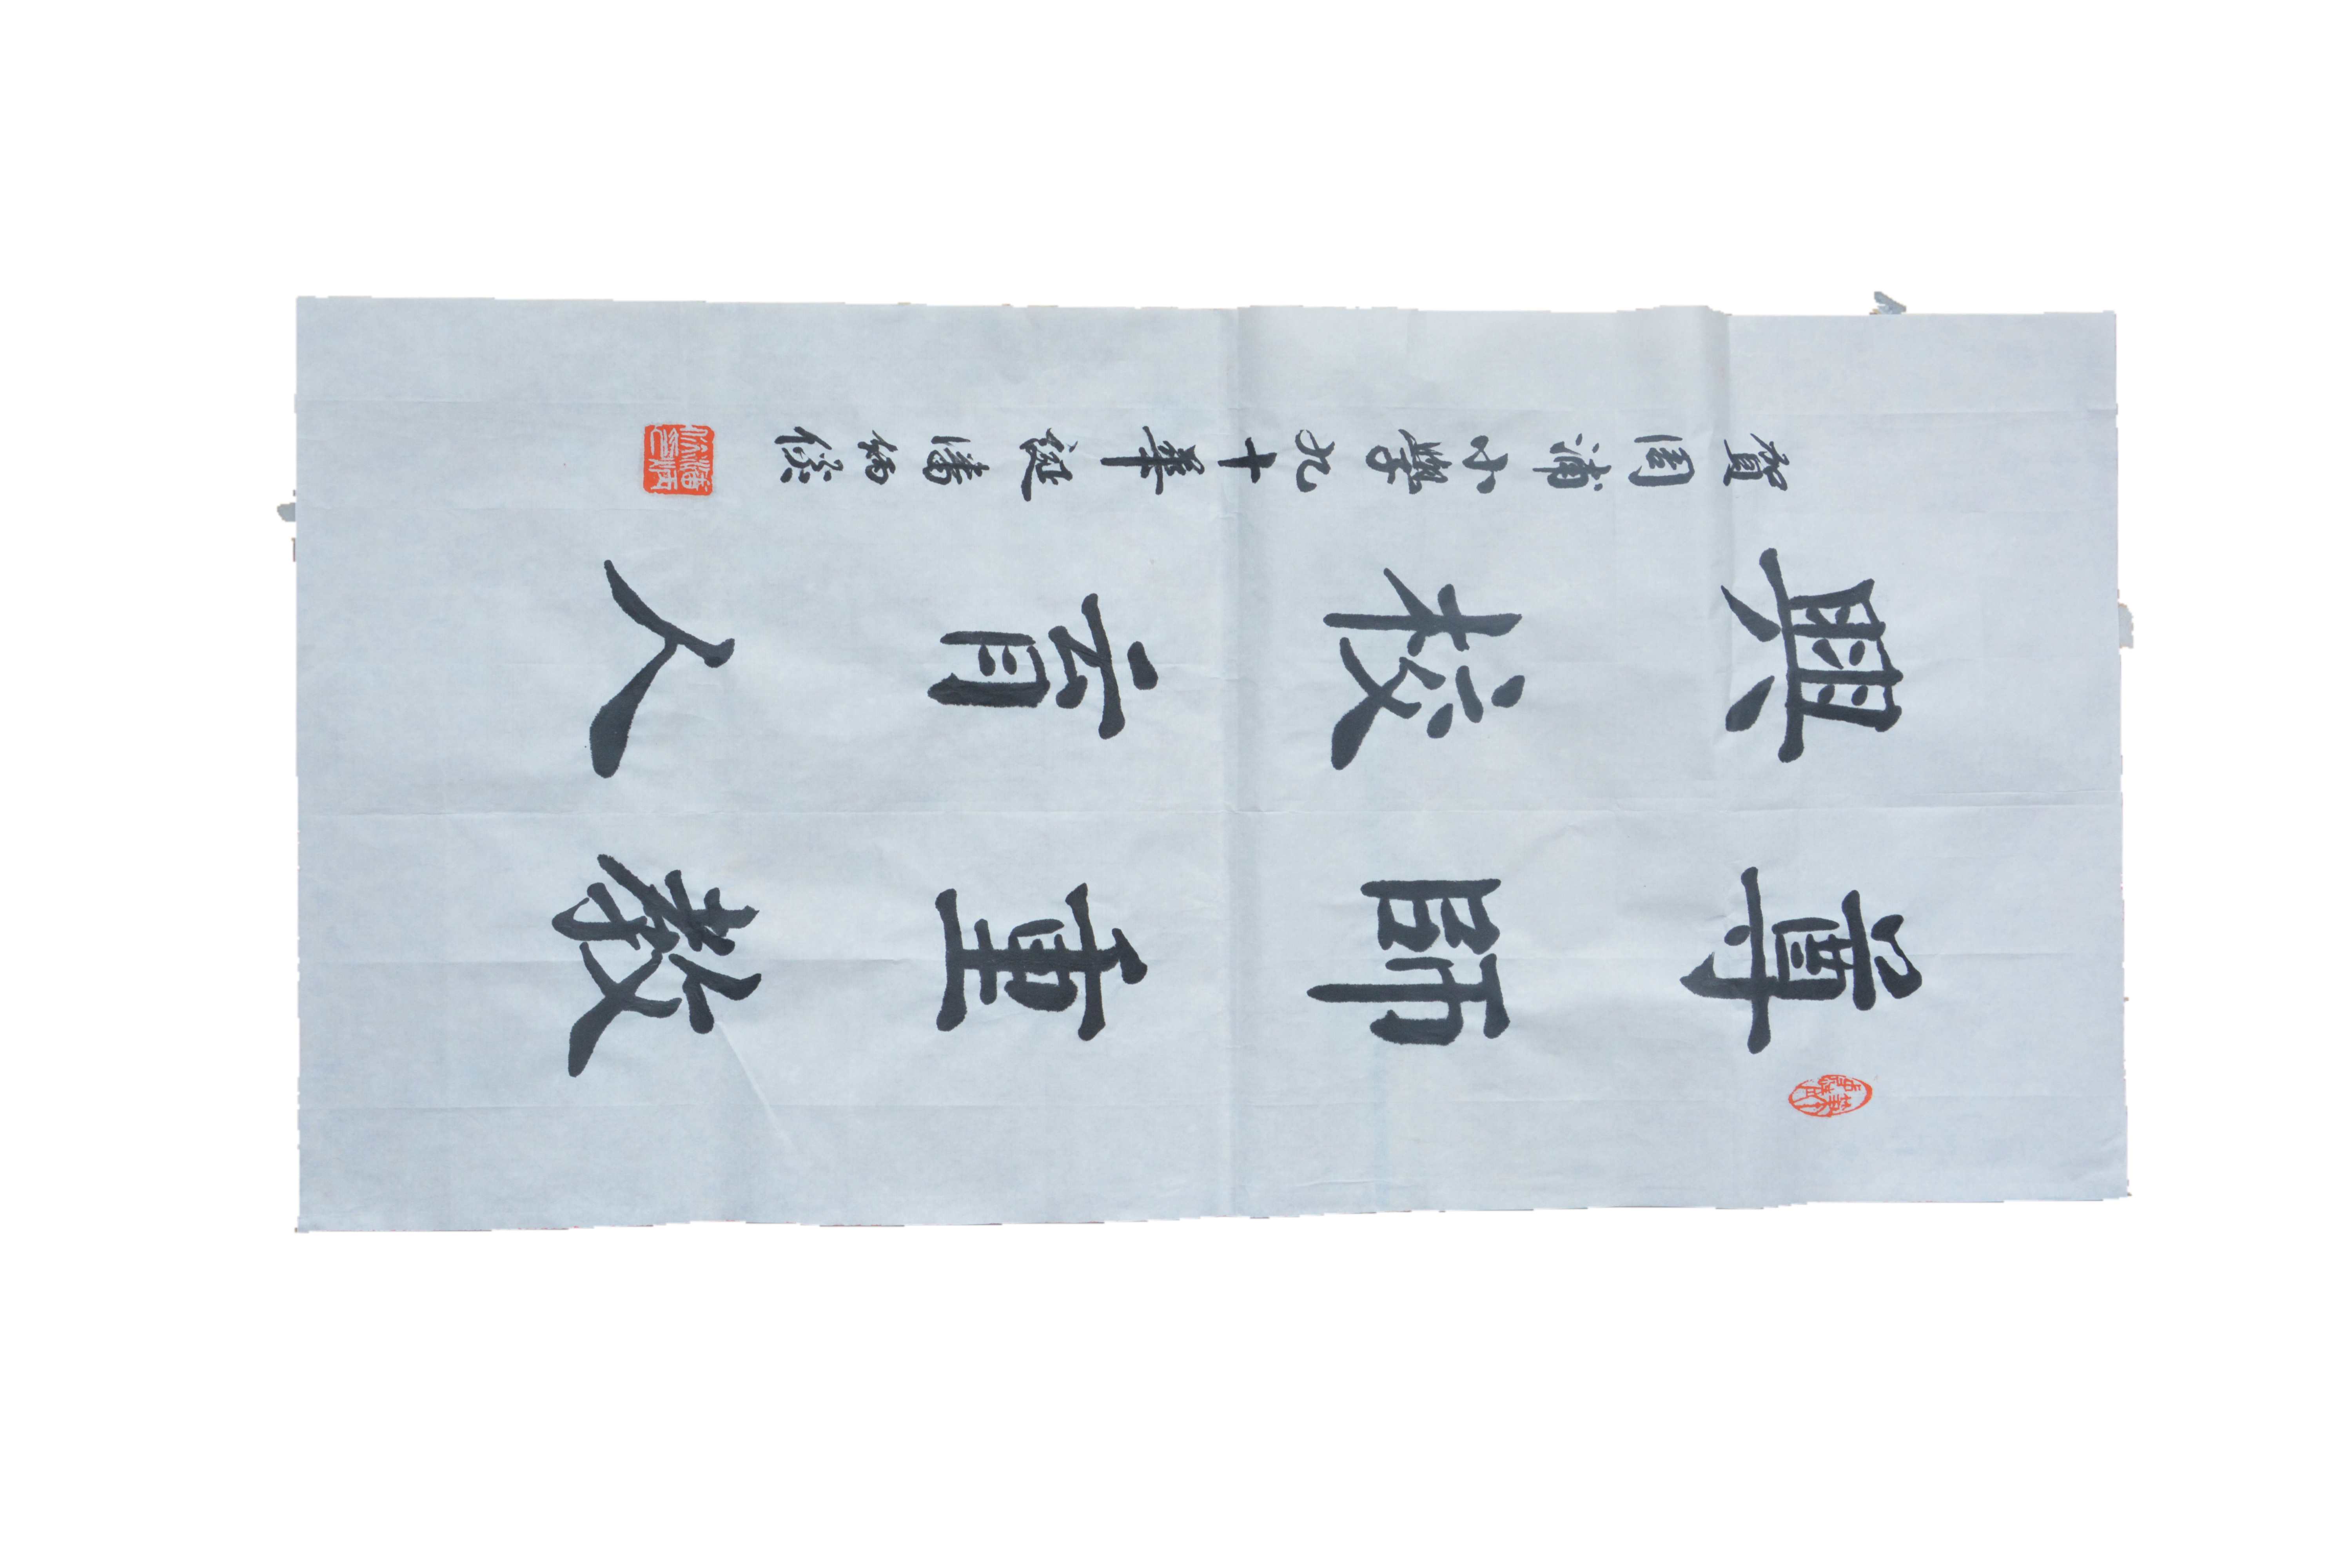 尊師重教
興校育人
賀周浦小學九十華誕潘